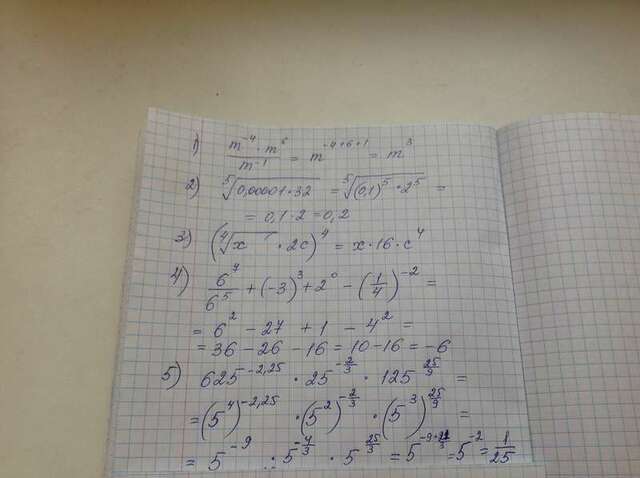 1) m⁻⁴ · m⁶ / m⁻¹ = m⁻⁴⁺⁶⁺¹ = m³
2) ⁵√(0,00001 · 32) = ⁵√((0,1)⁵ · 2⁵) =
= 0,1 · 2 = 0,2
3) (⁴√x · 2c)⁴ = x · 16 · c⁴
4) 6⁷/6⁵ + (-3)³ + 2⁰ - (1/4)⁻² =
= 6² - 27 + 1 - 4² =
= 36 - 26 - 16 = 10 - 16 = -6
5) 625^(-2,25) · 25^(-2/3) · 125^(25/9) =
= (5⁴)^(-2,25) · (5²)^(-2/3) · (5³)^(25/9) =
= 5⁻⁹ · 5^(-4/3) · 5^(25/3) = 5^(-9+21/3) = 5⁻² = 1/25